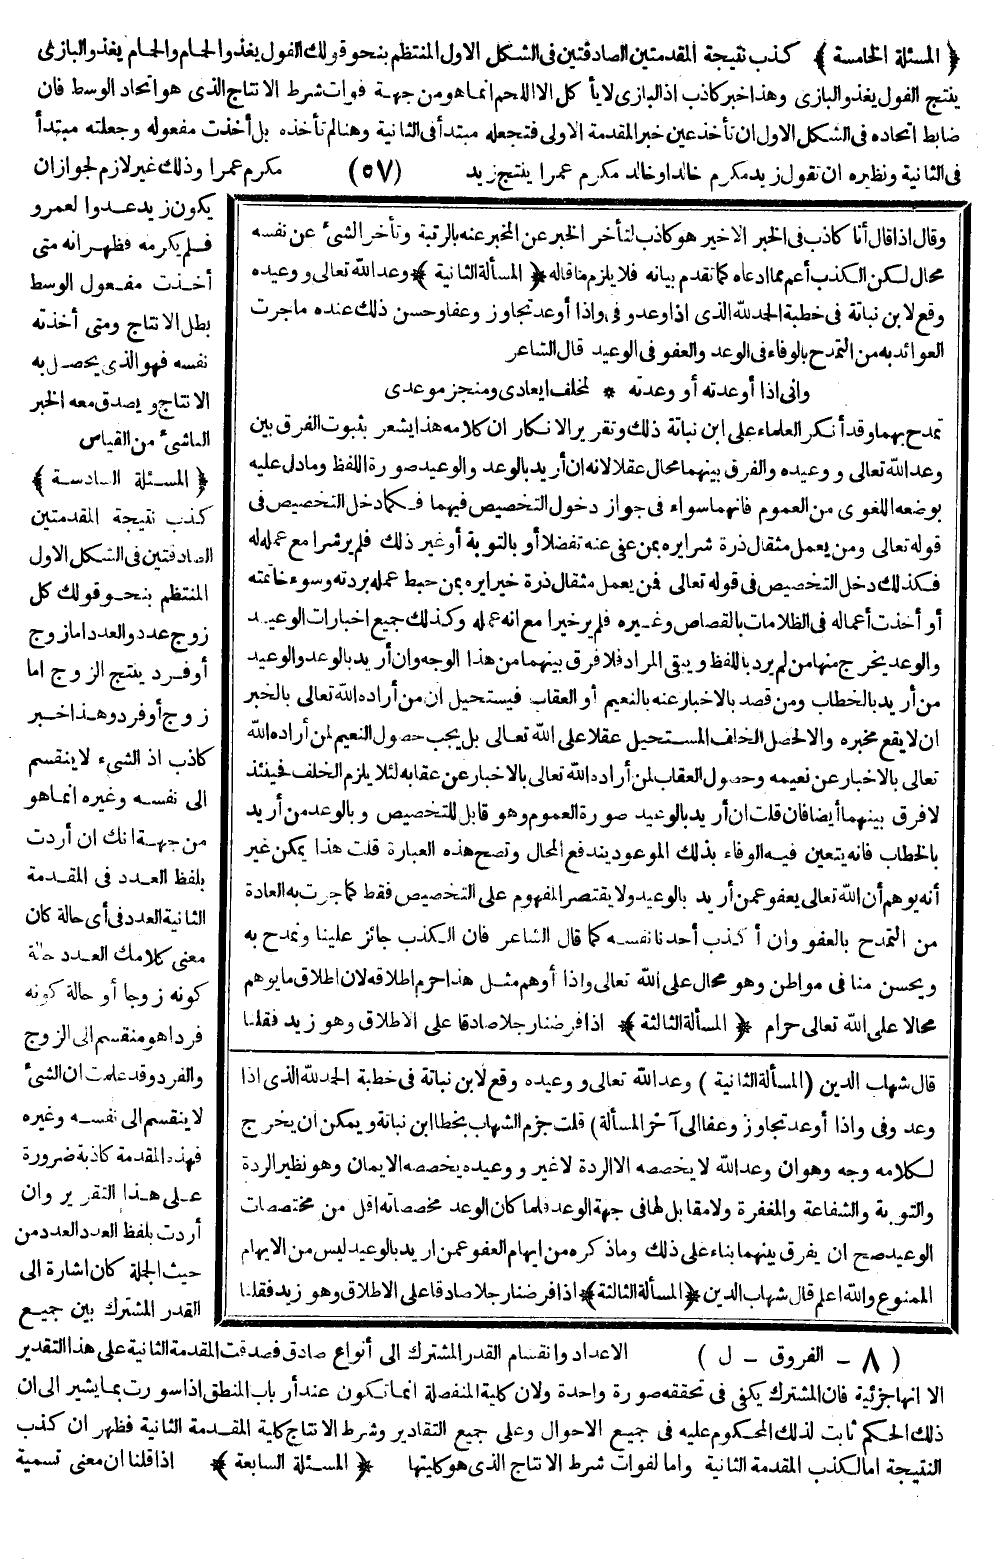 ﴿ المسئلة الخامسة ﴾ كذب نتيجة المقدمتين الصادقتين فى الشكل الاول المنتظم بنحو قولك الفول يغذو الحمام والحمام يغذو البازى
ينتج الفول يغذو البازى وهذا خبر كاذب اذ البازى لا يأ كل الا اللحم انما هو من جهة فوات شرط الانتاج الذى هو اتحاد الوسط فان
ضابط اتحاده فى الشكل الاول ان تأخذ عين خبر المقدمة الاولى فتجعله مبتدأ فى الثانية وهنا لم تأخذه بل أخذت مفعوله وجعلته مبتدأ
فى الثانية ونظيره ان تقول زيد مكرم خالدا وخالد مكرم عمرا ينتج زيد (٥٧) مكرم عمرا وذلك غير لازم لجواز ان
يكون زيد عدوا لعمرو
فلم يكرمه فظهر انه متى
أخذت مفعول الوسط
بطل الانتاج ومتى أخذته
نفسه فهو الذى يحصل به
الانتاج ويصدق معه الخبر
الناشئ من القياس
﴿ المسئلة السادسة ﴾
كذب نتيجة المقدمتين
الصادقتين فى الشكل الاول
المنتظم بنحو قولك كل
زوج عدد والعدد اما زوج
أو فرد ينتج الزوج اما
زوج أو فرد وهذا خبر
كاذب اذ الشىء لا ينقسم
الى نفسه وغيره انما هو
من جهة انك ان أردت
بلفظ العدد فى المقدمة
الثانية العدد فى أى حالة كان
معنى كلامك العدد حالة
كونه زوجا أو حالة كونه
فردا هو منقسم الى الزوج
والفرد وقد علمت ان الشئ
لا ينقسم الى نفسه وغيره
فهذه المقدمة كاذبة ضرورة
على هذا التقرير وان
أردت بلفظ العدد العدد من
حيث الجملة كان اشارة الى
القدر المشترك بين جميع
وقال اذا قال أنا كاذب فى الخبر الاخير هو كاذب لتأخر الخبر عن المخبر عنه بالرتبة وتأخر الشئ عن نفسه
محال لكن الكذب أعم مما ادعاه كما تقدم بيانه فلا يلزم ما قاله ﴿ المسألة الثانية ﴾ وعد الله تعالى ووعيده
وقع لابن نباتة فى خطبة الحمد لله الذى اذا وعد وفى واذا أوعد تجاوز وعفا وحسن ذلك عنده ما جرت
العوائد به من التمدح بالوفاء فى الوعد والعفو فى الوعيد قال الشاعر
وانى اذا أوعدته أو وعدته * لمخلف ايعادى ومنجز موعدى
تمدح بهما وقد أنكر العلماء على ابن نباتة ذلك وتقرير الانكار ان كلامه هذا يشعر بثبوت الفرق بين
وعد الله تعالى ووعيده والفرق بينهما محال عقلا لانه ان أريد بالوعد والوعيد صورة اللفظ وما دل عليه
بوضعه اللغوى من العموم فانهما سواء فى جواز دخول التخصيص فيهما فكما دخل التخصيص فى
قوله تعالى ومن يعمل مثقال ذرة شرا يره بمن عفى عنه تفضلا أو بالتوبة أو غير ذلك فلم ير شرا مع عمله له
فكذلك دخل التخصيص فى قوله تعالى فمن يعمل مثقال ذرة خيرا يره بمن حبط عمله بردته وسوء خاتمته
أو أخذت أعماله فى الظلامات بالقصاص وغيره فلم ير خيرا مع انه عمله وكذلك جميع اخبارات الوعيد
والوعد يخرج منها من لم يرد باللفظ ويبقى المراد فلا فرق بينهما من هذا الوجه وان أريد بالوعد والوعيد
من أريد بالخطاب ومن قصد بالاخبار عنه بالنعيم أو العقاب فيستحيل ان من أراده الله تعالى بالخبر
ان لا يقع مخبره والا لحصل الخلف المستحيل عقلا على الله تعالى بل يجب حصول النعيم لمن أراده الله
تعالى بالاخبار عن نعيمه وحصول العقاب لمن أراده الله تعالى بالاخبار عن عقابه لئلا يلزم الخلف فحينئذ
لا فرق بينهما أيضا فان قلت ان أريد بالوعيد صورة العموم وهو قابل للتخصيص وبالوعد من أريد
بالخطاب فانه يتعين فيه الوفاء بذلك الموعود يندفع المحال وتصح هذه العبارة قلت هذا يمكن غير
أنه يوهم أن الله تعالى يعفو عمن أريد بالوعيد ولا يقتصر المفهوم على التخصيص فقط كما جرت به العادة
من التمدح بالعفو وان أكذب أحدنا نفسه كما قال الشاعر فان الكذب جائز علينا ونمدح به
ويحسن منا فى مواطن وهو محال على الله تعالى واذا أوهم مثل هذا حرم اطلاقه لان اطلاق ما يوهم
محالا على الله تعالى حرام ﴿ المسألة الثالثة ﴾ اذا فرضنا رجلا صادقا على الاطلاق وهو زيد فقلنا
قال شهاب الدين (المسألة الثانية ) وعد الله تعالى ووعيده وقع لابن نباتة فى خطبة الحمد لله الذى اذا
وعد وفى واذا أوعد تجاوز وعفا الى آخر المسألة) قلت جزم الشهاب بخطا ابن نباتة ويمكن ان يخرج
لكلامه وجه وهو ان وعد الله لا يخصصه الا الردة لا غير ووعيده يخصصه الايمان وهو نظير الردة
والتوبة والشفاعة والمغفرة ولا مقابل لها فى جهة الوعد فلما كان الوعد مخصصاته اقل من مختصصات
الوعيد صح ان يفرق بينهما بناء على ذلك وما ذكره من ايهام العفو عمن اريد بالوعيد ليس من الايهام
الممنوع والله اعلم قال شهاب الدين ﴿ المسألة الثالثة ﴾ اذا فرضنا رجلا صادقا على الاطلاق وهو زيد فقلنا
( ٨ - الفروق - ل ) الاعداد وانقسام القدر المشترك الى أنواع صادق فصدقت المقدمة الثانية على هذا التقدير
الا انها جزئية فان المشترك يكفى فى تحققه صورة واحدة ولان كلية المنفصلة انما تكون عند أرباب المنطق اذا سورت بما يشير الى ان
ذلك الحكم ثابت لذلك المحكوم عليه فى جميع الاحوال وعلى جميع التقادير وشرط الانتاج كلية المقدمة الثانية فظهر ان كذب
النتيجة اما لكذب المقدمة الثانية واما لفوات شرط الانتاج الذى هو كليتها ﴿ المسئلة السابعة ﴾ اذا قلنا ان معنى تسمية